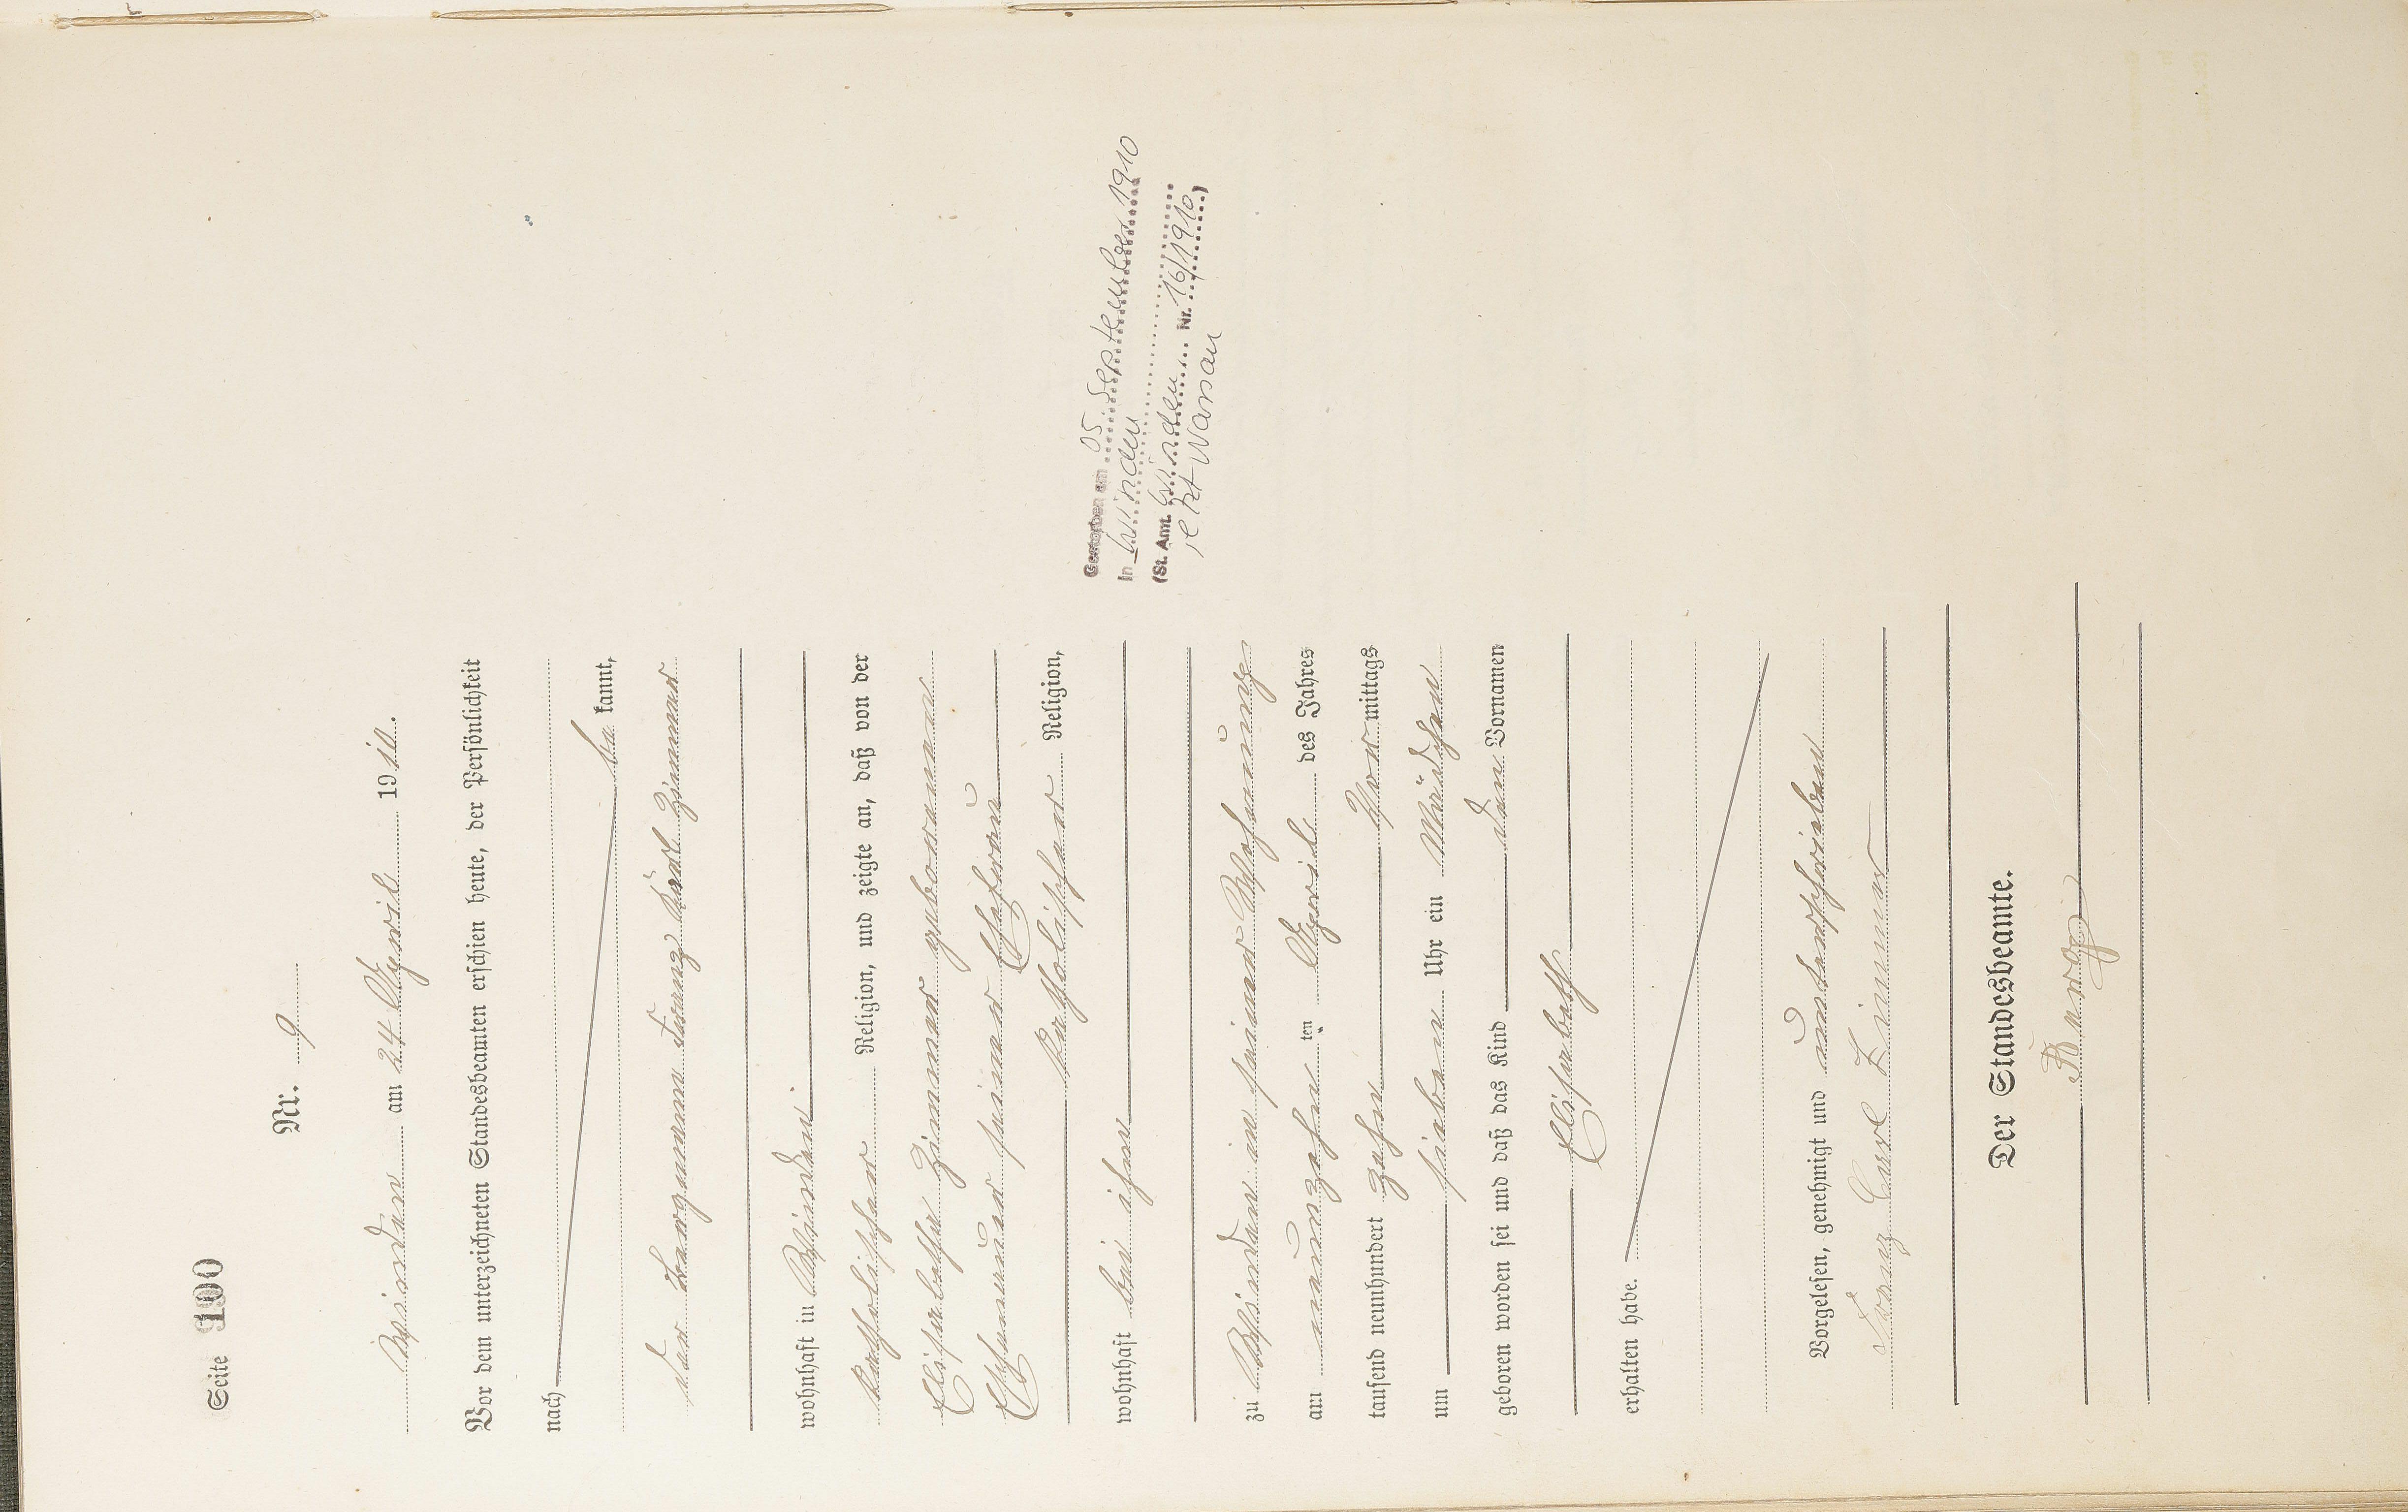 Seite 100
Nr. 9
Weinden am 24 April 1910.
Vor dem unterzeichneten Standesbeamten erschien heute, der Persönlichkeit
nach
be kannt,
der Bergmann Franz Karl Zimmer
wohnhaft in Weinden
katholischer Religion, und zeigte an, daß von der
Elisabetha Zimmer geborenen
Ehefrau
Ehemannes seiner
katholischer Religion,
wohnhaft bei ihm
zu Weinden in seiner Wohnung
am neunzehn ten April des Jahres
tausend neunhundert zehn Vor mittags
um sieben Uhr ein Mädchen
geboren worden sei und daß das Kind den Vornamen
Elisabeth
erhalten habe.
Vorgelesen, genehmigt und unterschrieben
Franz Carl Zimmer
Der Standesbeamte.
Gestorben am 05. September 1910
in
(St. Amt. Nr. 16/1910)